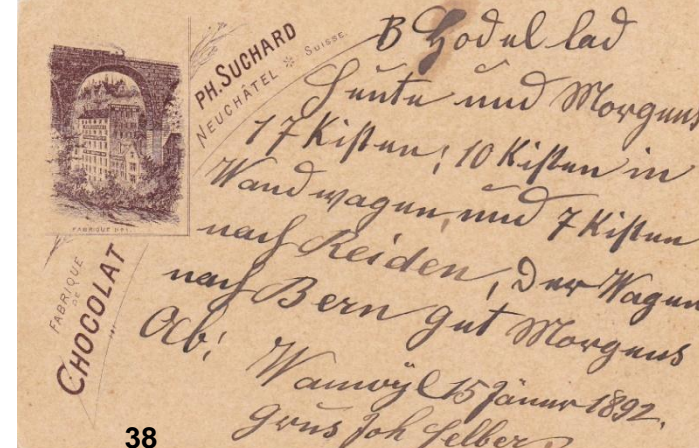 PH. SUCHARD
NEUCHÂTEL ❊ SUISSE
FABRIQUE DE
CHOCOLAT
B Hodel lad
Heute und Morgens
17 Kisten; 10 Kisten in
Wand wagen, und 7 Kisten
nach Reiden, Der Wagen
nach Bern gut Morgens
Ab;
Wauwyl 15 Jänner 1892.
Grus Joh Felber
38